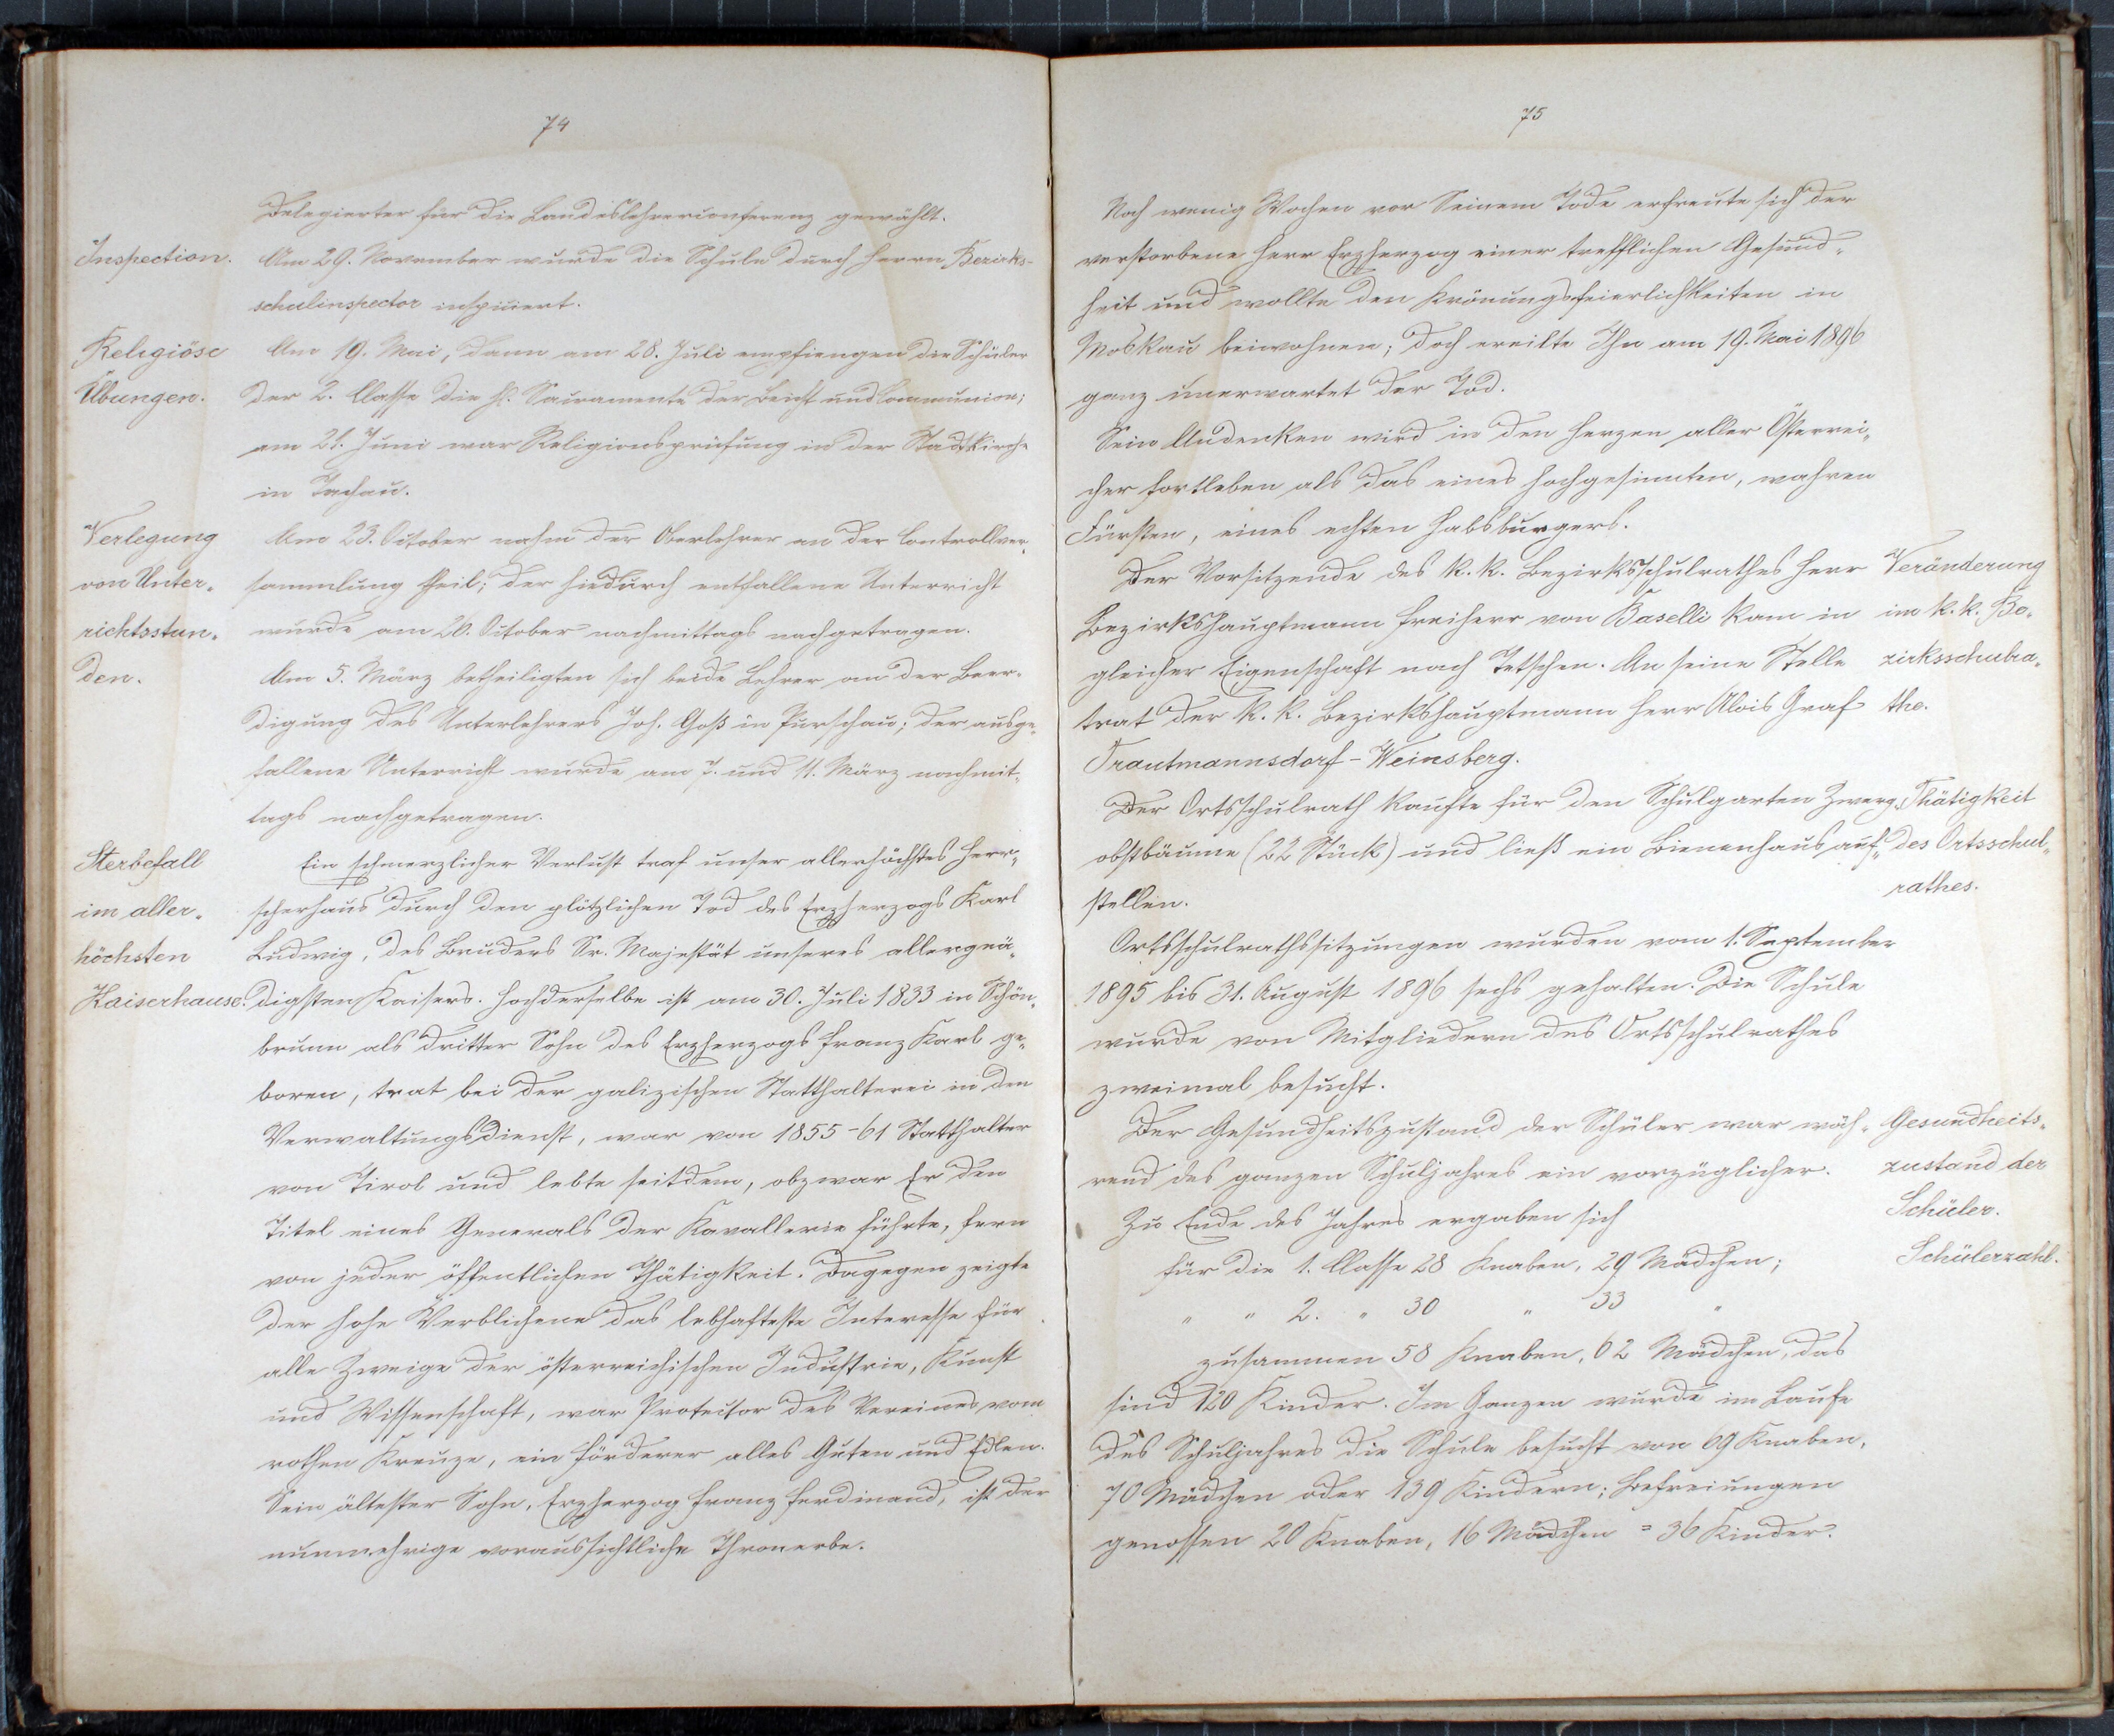 74
Delegierter für die Landeslehrerconferenz gewählt.
Inspection.
Am 29. November wurde die Schule durch Herrn Bezirks-
schulinspector inspiciert.
Religiöse
Übungen.
Am 19. Mai, dann am 28. Juli empfiengen die Schüler
der 2. Classe die hl. Sacramente der Beicht und Communion;
am 21. Juni war Religionsprüfung in der Stadtkirche
in Tachau.
Verlegung
von Unter-
richtsstun-
den.
Am 23. October nahm der Oberlehrer an der Controllver-
sammlung theil; der hiedurch entfallene Unterricht
wurde am 26. October nachmittags nachgetragen.
Am 5. März betheiligten sich beide Lehrer an der Beer-
digung des Unterlehrers Joh. Goß in Purschau; der ausge-
fallene Unterricht wurde am 7. und 11. März nachmit-
tags nachgetragen.
Sterbefall
im aller-
höchsten
Kaiserhause.
Ein schmerzlicher Verlust traf unser allerhöchstes Herr-
scherhaus durch den plötzlichen Tod des Erzherzogs Karl
Ludwig, des Bruders Sr. Majestät unseres allergnä-
digsten Kaisers. Hochderselbe ist am 30. Juli 1833 in Schön-
brunn als dritter Sohn des Erzherzogs Franz Karl ge-
boren, trat bei der galizischen Statthalterei in den
Verwaltungsdienst, war von 1855-61 Statthalter
von Tirol und lebte seitdem, obzwar Er den
Titel eines Generals der Kavallerie führte, fern
von jeder öffentlichen Thätigkeit. Dagegen zeigte
der hohe Verblichene das lebhafteste Interesse für
alle Zweige der österreichischen Industrie, Kunst
und Wissenschaft, war Protector des Vereines vom
rothen Kreuze, ein Förderer alles Guten und Edlen.
Sein ältester Sohn, Erzherzog Franz Ferdinand, ist der
nunmehrige voraussichtliche Thronerbe.
75
Noch wenig Wochen vor Seinem Tode erfreute sich der
verstorbene Herr Erzherzog einer trefflichen Gesund-
heit und wollte den Krönungsfeierlichkeiten in
Moskau beiwohnen; doch ereilte Ihn am 19. Mai 1896
ganz unerwartet der Tod.
Sein Andenken wird in den Herzen aller Österrei-
cher fortleben als das eines hochgesinnten, wahren
Fürsten, eines echten Habsburgers.
Der Vorsitzende des k. k. Bezirksschulrathes Herr
Bezirkshauptmann Freiherr von Baselli kam in
gleicher Eigenschaft nach Tetschen. An seine Stelle
trat der k. k. Bezirkshauptmann Herr Alois Graf
Trautmannsdorf-Weinsberg.
Veränderung
im k. k. Be-
zirksschulra-
the.
Der Ortsschulrath kaufte für den Schulgarten Zwerg-
obstbäume (22 Stück) und ließ ein Bienenhaus auf-
stellen.
Thätigkeit
des Ortsschul-
rathes.
Ortsschulrathssitzungen wurden vom 1. September
1895 bis 31. August 1896 sechs gehalten. Die Schule
wurde von Mitgliedern des Ortsschulrathes
zweimal besucht.
Der Gesundheitszustand der Schüler war wäh-
rend des ganzen Schuljahres ein vorzüglicher.
Gesundheits-
zustand der
Schüler.
Zu Ende des Jahres ergaben sich
für die 1. Classe 28 Knaben, 29 Mädchen;
Schülerzahl.
" " 2. " 30 " 33 "
zusammen 58 Knaben, 62 Mädchen, das
sind 120 Kinder. Im Ganzen wurde im Laufe
des Schuljahres die Schule besucht von 69 Knaben,
70 Mädchen oder 139 Kindern; Befreiungen
genossen 20 Knaben, 16 Mädchen = 36 Kinder.